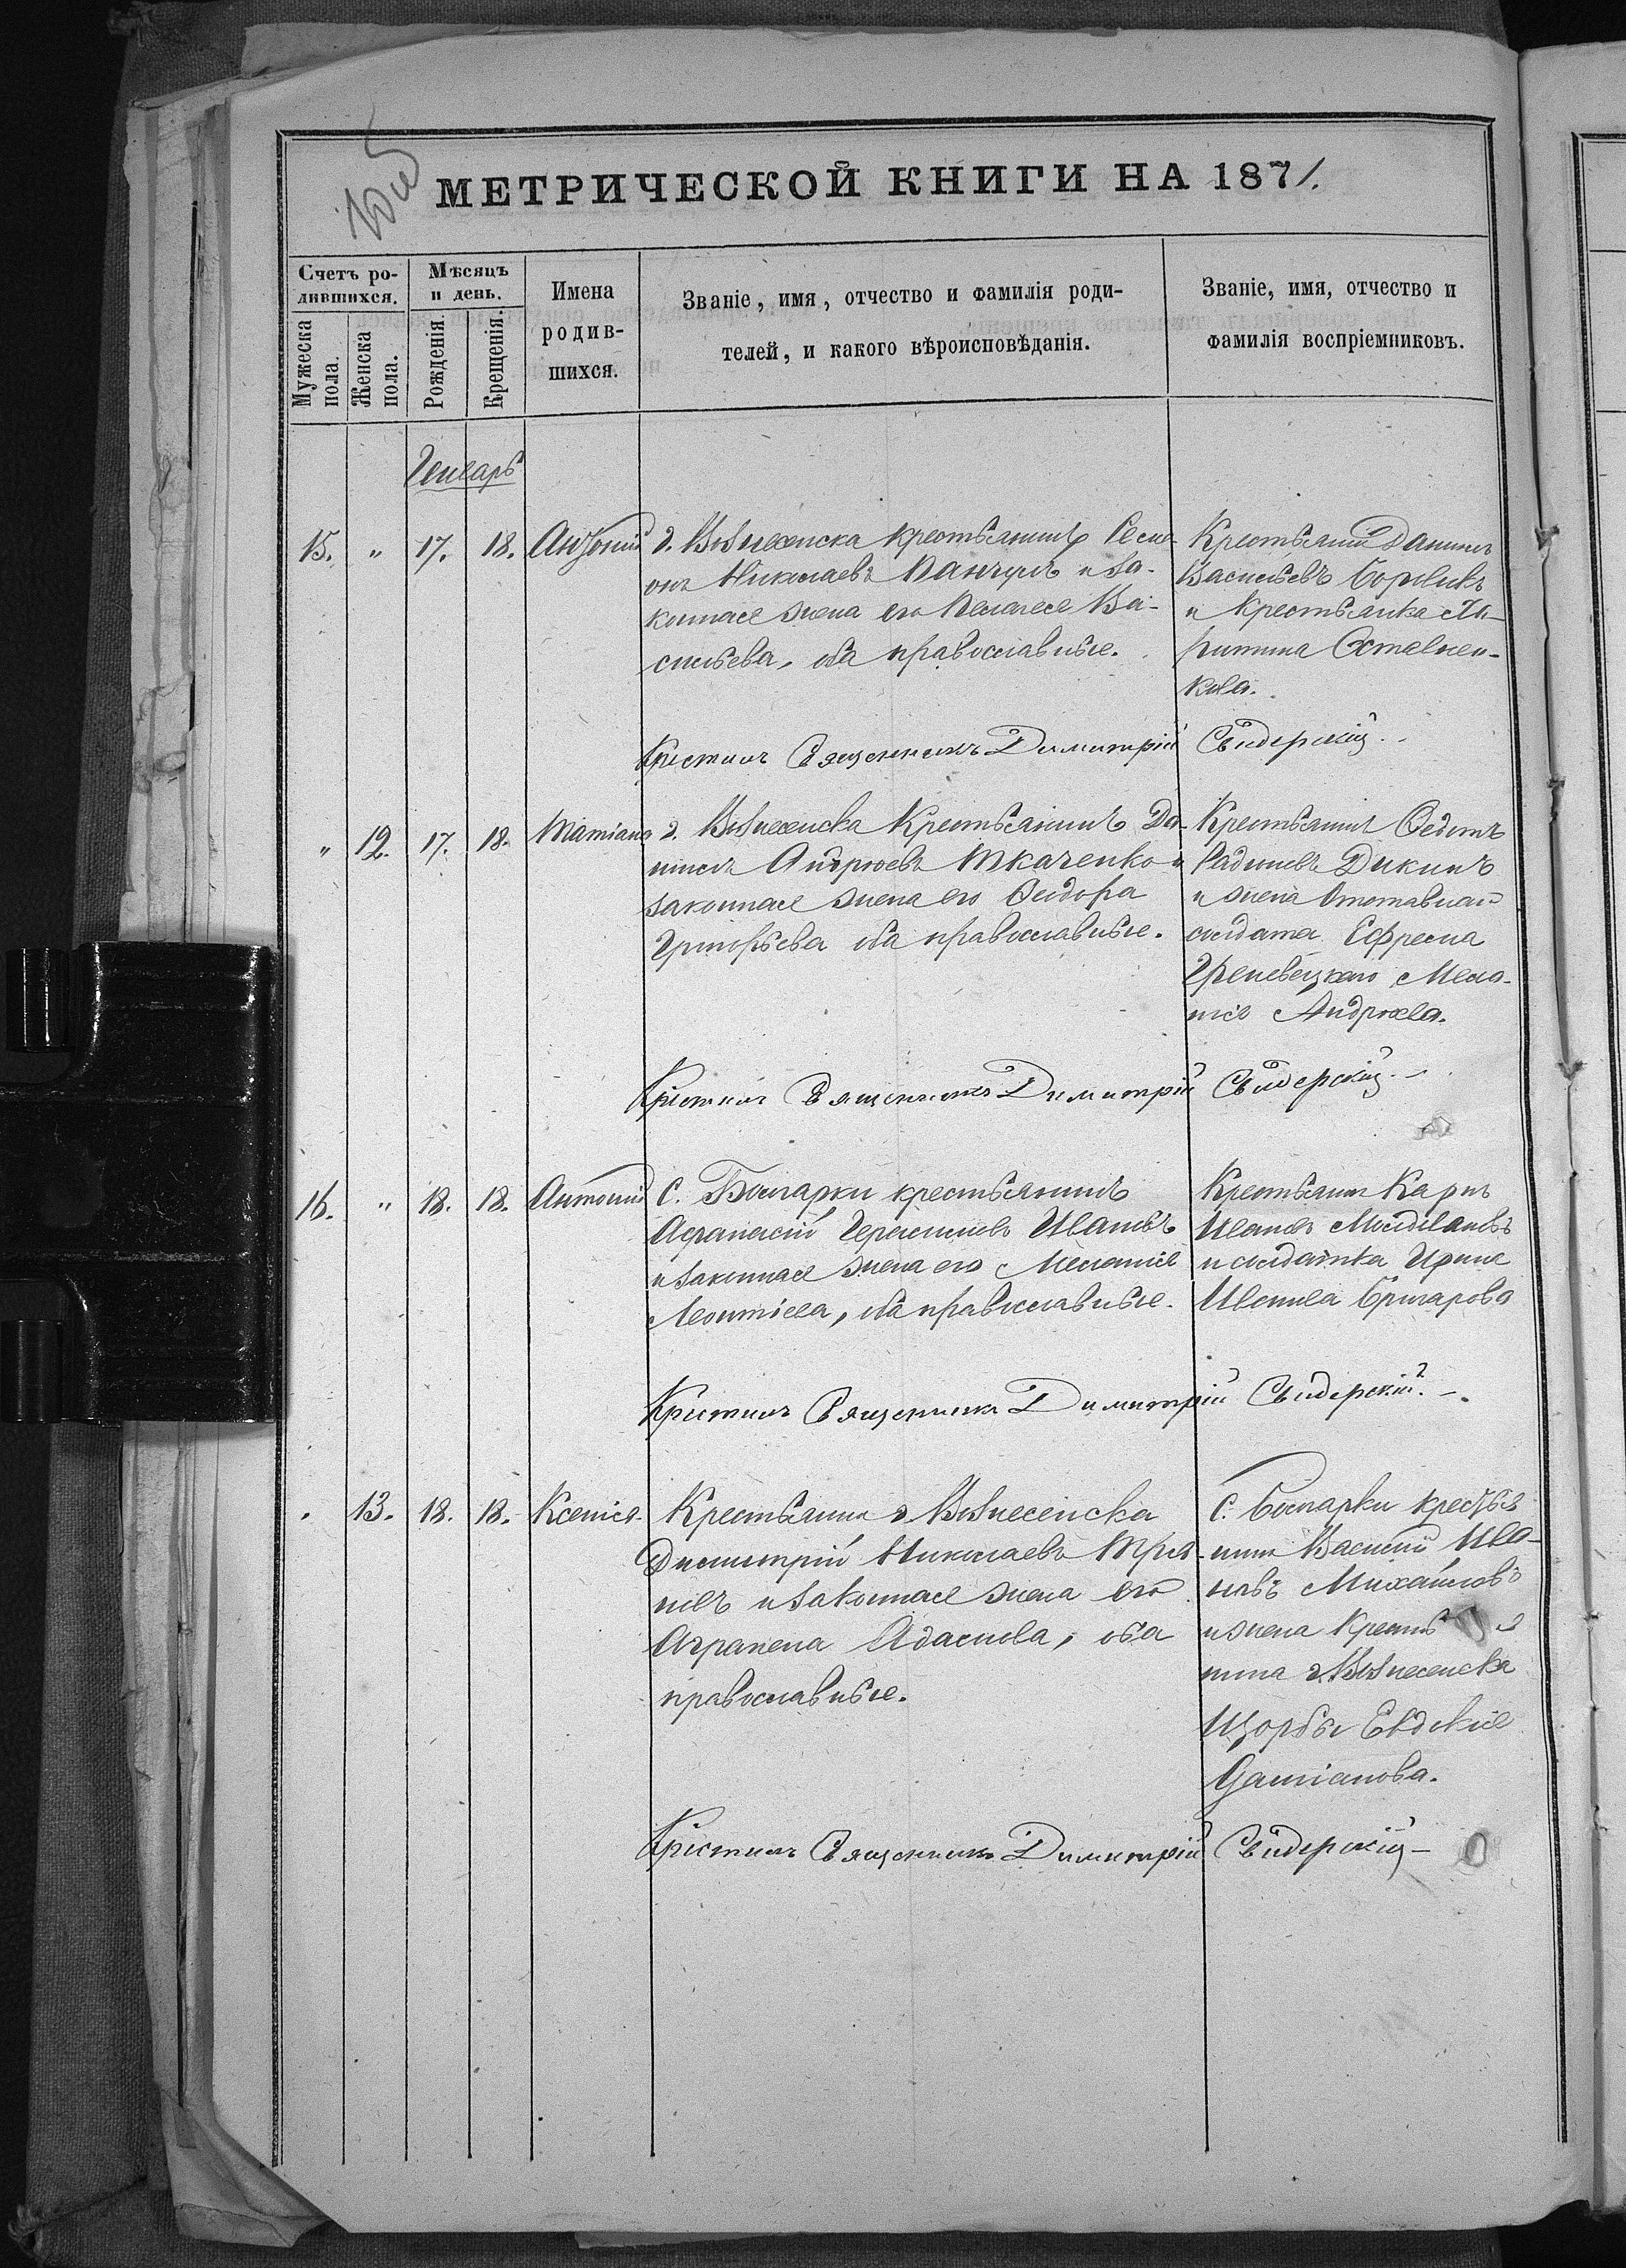 МЕТРИЧЕСКОЙ КНИГИ НА 1871.
Счетъ ро-
дившихся.
Мужеска
пола.
Женска
пола.
Мѣсяцъ
и день.
Рожденія.
Крещенія.
Имена
родив-
шихся.
Званіе, имя, отчество и фамилія роди-
телей, и какого вѣроисповѣданія.
Званіе, имя, отчество и
фамилія воспріемниковъ.
Генварь
15. " 17. 18. Антоній
г. Вознесенска крестьянинъ Семі-
онъ Николаевъ Панчулъ и за-
конная жена его Пелагея Ва-
сильева, оба православные.
Крестьянинъ Даніилъ
Васильевъ Боровикъ
и крестьянка
Крестилъ Священникъ Димитрій Свидерскій
" 12. 17. 18. Татіана
г. Вознесенска Крестьянинъ Да-
ніилъ Андреевъ Ткаченко и
законная жена его Феодора
Григорьева оба православные.
Крестьянинъ Федотъ
Дикинъ
и жена Отставнаго
солдата Ефрема
Мела-
нія Андреева.
Крестилъ Священникъ Димитрій Свидерскій
16. " 18. 18. Антоній
С. Болгарки крестьянинъ
Афанасій Герасимовъ Ивановъ
и законная жена его Меланія
Леонтіева, оба православные.
Крестьянинъ Карпъ
Ивановъ Молдовановъ
и солдатка Ирина
Иванова
Крестилъ Священникъ Димитрій Свидерскій
13. 18. 18. Ксенія
Крестьянинъ г. Вознесенска
Димитрій Николаевъ
и законная жена его
Агрипена Адамова, оба
православные.
С. Болгарки крестья-
нинъ Василій Ива-
новъ Михайловъ
и жена
нина г. Вознесенска
Евдокія
Даміанова.
Крестилъ Священникъ Димитрій Свидерскій